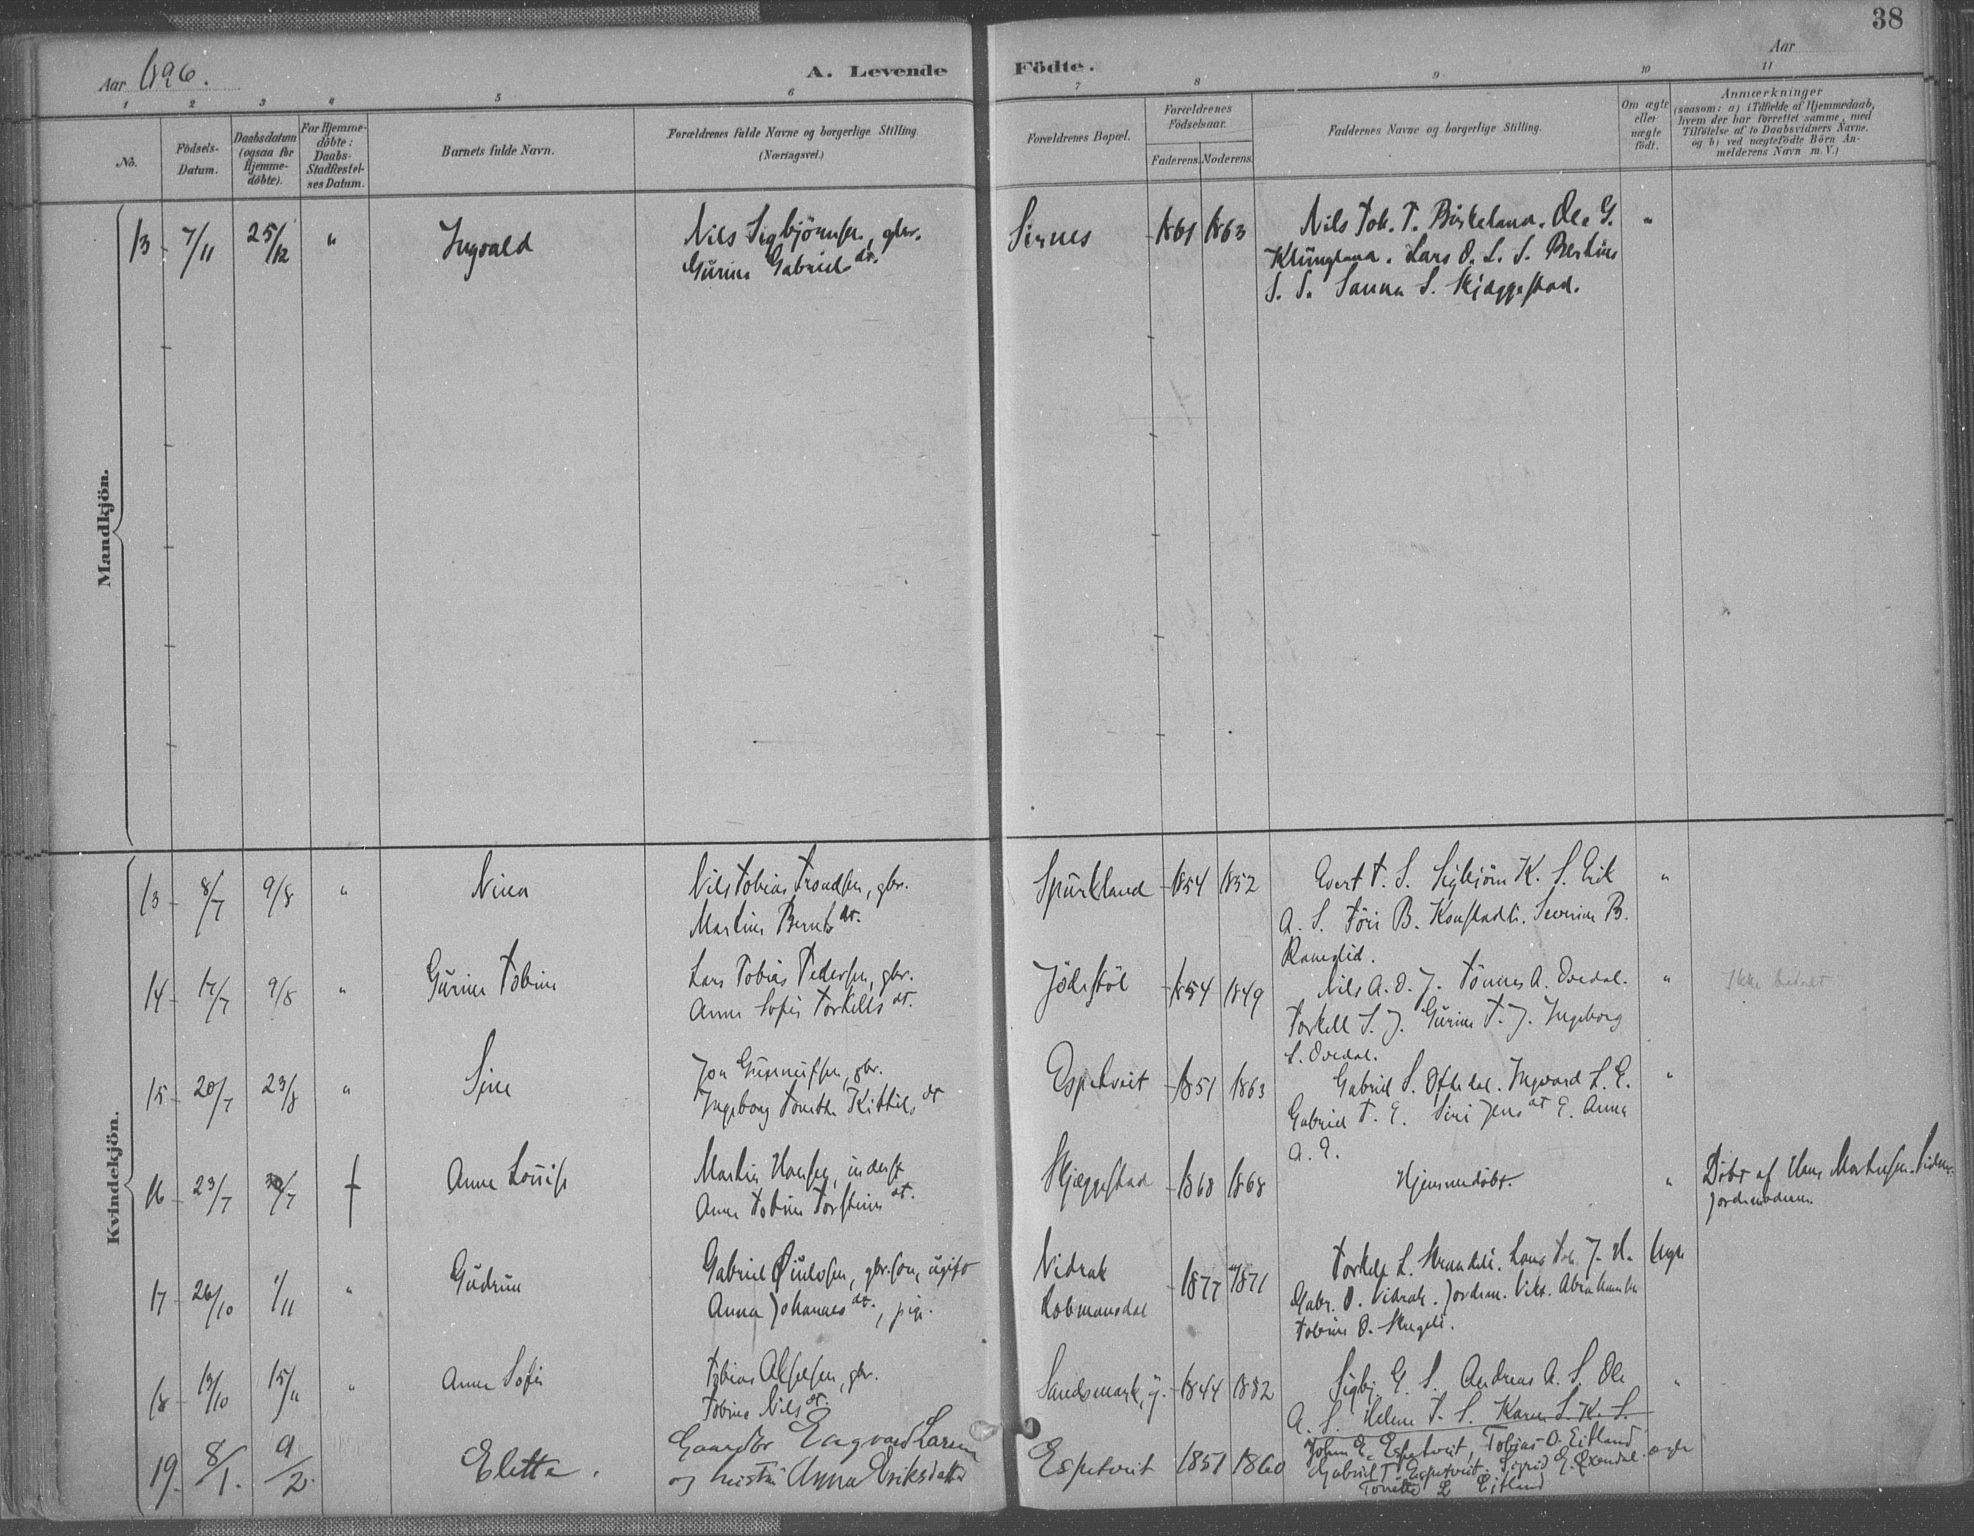 38
Aar 1896.
A. Levende Födte.
Aar
1 2 3 4 5 6 7 8 9 10 11
No.
Födsels-Datum.
Daabsdatum (ogsaa for Hjemme-döbte).
For Hjemme-döbte: Daabs-Stadfæstel-ses Datum.
Barnets fulde Navn.
Forældrenes fulde Navne og borgerlige Stilling.
(Næringsvei.)
Forældrenes Bopæl.
Forældrenes Födselsaar.
Faderens. Moderens.
Faddernes Navne og borgerlige Stilling.
Om ægte eller uægte födt.
Anmærkninger
(saasom: a) i Tilfælde af Hjemmedaab, hvem der har forrettet samme, med Tilföielse af to Daabsvidners Navne. og b) ved uægtefödte Börn An-melderens Navn m. V.)
Mandkjön.
13 7/11 25/12 " Ingvald
Nils Sigbjörnsen, gbr.
Gurine Gabriels dt.
Sirnes 1861 1863
Nils Tob. T. Birkeland. Ole G.
Klungland. Lars O. L. S. Bertine
S. S. Sanna S. Skjæggestad.
"
Kvindekjön.
13 8/7 9/8 " Nina
Nils Tobias Trondsen, gbr.
Martine Bernts dt.
Spurkland 1854 1852
Evert T. S. Sigbjörn K. S. Erik
A. S. Töri B. Konstadli. Severine B.
"
14 17/7 9/8 " Gurine Tobine
Lars Tobias Pedersen, gbr.
Anne Sofie Torkells dt.
Jödestöl 1854 1849
Nils A. O. J. Tönnes A. Ovedal.
Torkell S. J. Gurine T. J. Ingeborg
L. Ovedal.
"
Ikke betalt
15 20/7 23/8 " Sine
Jon Gunneufsen, gbr.
Ingeborg Tonette Kittils dt
Espetveit 1851 1863
Gabriel S. Oftedal. Ingvard L. E.
Gabriel T. E. Siri Jens dt E. Anna
A. E.
"
16 23/7 30/7 † Anne Louise
Martin Hansen, inderst
Anne Tobine Torsteins dt.
Skjæggestad 1868 1868
Hjemmedöbt.
"
Döbt af Hans Mortensen
Jordemoderen.
17 26/10 1/11 " Gudrun
Gabriel Paulsen, gbr.sön, ugift
Anna Johannes dt., pige.
Nidrak
Lobmansdal
1877 1871
Torkell L. Strandli. Lars Tob. J. H.
Gabr. O. Vidrak. Jordem. Vikt. Abrahamsen
Tobine O. Skregeli.
Uægte
18 13/10 15/11 " Anne Sofie
Tobias Alfsen, gbr.
Tobine Nils dt.
Sandsmark, y. 1844 1882
Sigbj. G. S. Andreas A. S. Ole
A. S. Helene T. S. Karen S. K. S.
"
19 8/1. 9/2. Eletta.
Gaardbr Engvard Larsen
og hustru Anna Eriksdatter
Espetveit 1851 1860
John E. Espetveit, Tobias O. Eitland,
Gabriel T Espetveit. Sigrid E.
Tonette L Eitland
ægte